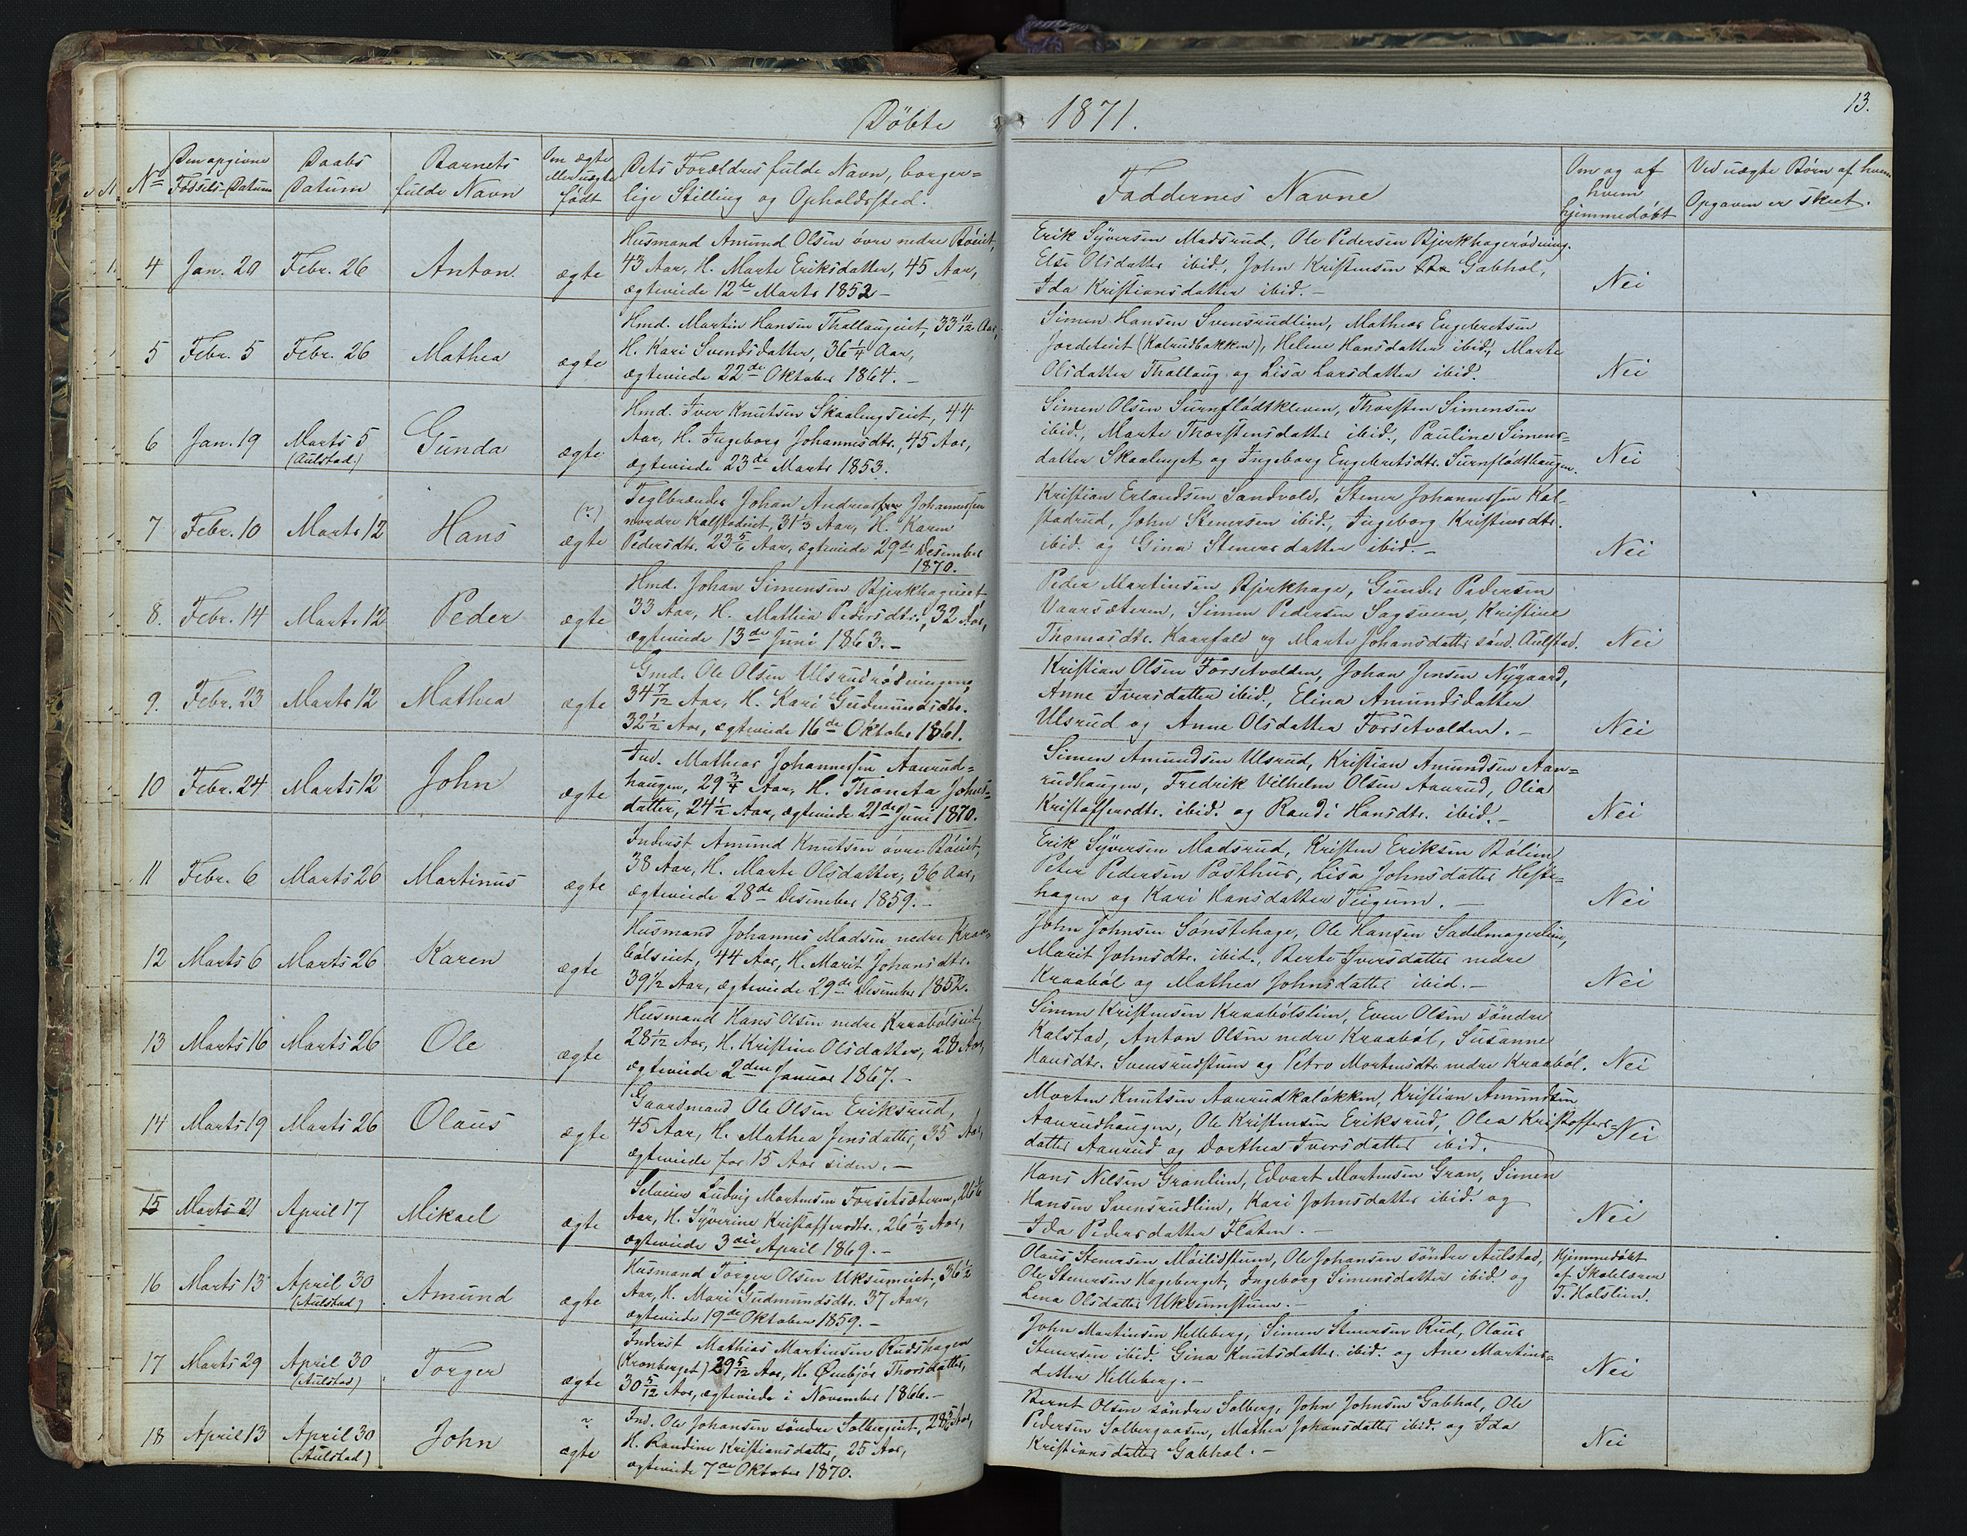 Døbte 1871.
13.
No
Den opgivne Fødsels-Datum
Daabs Datum
Barnets fulde Navn
Om ægte eller uægte født
Dets Forældres fulde Navn, borger-
lige Stilling og Opholdssted.
Faddernes Navne
Om og af hvem hjemmedøbt
Ved uægte Børn af hvem Opgaven er skeet.
4 Jan. 20 Febr. 26 Anton ægte
Husmand Amund Olsen øvre nedre Bøeiet,
43 Aar, H. Marte Eriksdatter, 45 Aar,
ægteviede 12te Marts 1852 –
Erik Syversen Madsrud, Ole Pedersen Bjerkhagerødning.
Else Olsdatter ibid., John Kristensen Gabhol,
Ida Kristiansdatter ibid. –
Nei
5 Febr. 5 Febr. 26 Mathea ægte
Hmd. Martin Hansen Thallaugeiet, 33 11/12 Aar,
H. Kari Svendsdatter, 36 1/4 Aar,
ægteviede 22de Oktober 1864. –
Simen Hansen Svensrudlien, Mathias Engebretsen
Jordeteiet (Kalrudbakken), Helene Hansdatter ibid., Marte
Olsdatter Thallaug og Lisa Larsdatter ibid.
Nei
6 Jan. 19 Marts 5 (Aulstad.) Gunda ægte
Hmd. Iver Knutsen Skaalingseiet, 44
Aar, H. Ingeborg Johannesdtr., 45 Aar,
ægteviede 23de Marts 1853.
Simen Olsen Surnflødtkleven, Thorsten Simensen
ibid., Marte Thorstensdatter ibid., Pauline Simens-
datter Skaalinget og Ingeborg Engebretsdtr. Surnflødthaugen.
Nei
7 Febr. 10 Marts 12 Hans (?) ægte
Teglbrænder Johan Andreassen Johannessen
nordre Kalstadeiet, 31 1/3 Aar, H. Karen
Pedersdtr. 23 5/6 Aar, ægteviede 29de Desember
1870.
Kristian Erlandsen Sandvold, Stener Johannessen Kal-
stadrud, John Stenersen ibid., Ingeborg Kristiansdtr.
ibid. og Gina Stenersdatter ibid. –
Nei
8. Febr. 14 Marts 12 Peder ægte
Hmd. Johan Simensen Bjerkhageeiet
33 Aar, H. Mathia Pedersdtr., 32 Aar,
ægteviede 13de Juni 1863. –
Peder Martinsen Bjerkhage, Gunder Pedersen
Vaarsæteren, Simen Pedersen Sagsveen, Kristine
Thomasdtr. Kaarfald og Marte Johansdatter sønd. Aulstad.
Nei
9. Febr. 23 Marts 12 Mathea ægte
Gmd. Ole Olsen Ulsrudrødningen,
34 7/12 Aar, H. Kari Gudmundsdtr.
32 1/2 Aar, ægteviede 16de Oktober 1861.
Kristian Olsen Forsetvolden, Johan Jensen Nygaard,
Anne Iversdatter ibid., Elina Amundsdatter
Ulsrud og Anne Olsdatter Forsetvolden. –
Nei
10 Febr. 24 Marts 12 John ægte
Ind. Mathias Johannessen Aanrud-
haugen, 29 3/4 Aar, H. Thonetta Johns-
datter, 24 1/2 Aar, ægteviede 21de Juni 1870.
Simen Amundsen Ulsrud, Kristian Amundsen Aan-
rudhaugen, Fredrik Vilhelm Olsen Aanrud, Olea
Kristoffersdtr. ibid. og Randi Hansdtr. ibid. –
Nei
11 Febr. 6 Marts 26 Martinus ægte
Inderst Amund Knutsen øvre Bøeiet,
38 Aar, H. Marte Olsdatter, 36 Aar,
ægteviede 28de Desember 1859. –
Erik Syversen Madsrud, Kristen Eriksen Bølien
Peter Pedersen Posthus, Lisa Johnsdatter Heste-
hagen og Kari Hansdatter Fugum. –
Nei
12 Marts 6 Marts 26 Karen ægte
Husmand Johannes Madsen nedre Kraa-
bøleiet, 44 Aar, H. Marit Johansdtr.
39 1/2 Aar, ægteviede 29de Desember 1852.
John Johnsen Sønstehage, Ole Hansen Sadelmagerlien,
Marit Johnsdtr. ibid., Berte Iversdatter nedre
Kraabøl og Mathea Johnsdatter ibid. –
Nei
13 Marts 16 Marts 26 Ole ægte
Husmand Hans Olsen nedre Kraabøleiet,
28 1/12 Aar, H. Kristine Olsdatter, 28 Aar,
ægteviede 2den Januar 1867. –
Simen Kristensen Kraabølslien, Even Olsen søndre
Kalstad, Anton Olsen nedre Kraabøl, Susanne
Hansdtr. Svensrudstuen og Petro Mortensdtr. nedre Kraabøl.
Nei
14 Marts 19 Marts 26 Olaus ægte
Gaardmand Ole Olsen Eriksrud,
45 Aar, H. Mathea Jensdatter, 35 Aar,
ægteviede for 15 Aar siden. –
Morten Knutsen Aanrudkaløkken, Kristian Amundsen
Aanrudhaugen, Ole Kristensen Eriksrud, Olea Kristoffers-
datter Aanrud og Dorthea Iversdatter ibid.
Nei
15 Marts 21 April 17 Mikael ægte
Selveier Ludvig Mortensen Forsetsæteren, 26 5/6
Aar, H. Syverine Kristoffersdtr. 26 1/3 Aar,
ægteviede 3die April 1869. –
Hans Nelsen Granlien, Edvart Mortensen Gran, Simen
Hansen Svensrudlien, Kari Johnsdatter ibid. og
Ida Pedersdatter Floten. –
Nei
16 Marts 13 April 30 (Aulstad) Amund ægte
Husmand Torger Olsen Uksumeiet, 36 1/2
Aar, H. Mari Gudmundsdtr. 37 Aar,
ægteviede 19de Oktober 1859. –
Olaus Stenersen Møilidstuen, Ole Johansen søndre Aulstad,
Ole Stenersen Hageberget, Ingeborg Simensdatter ibid. og
Lena Olsdatter Uksumstuen. –
Hjemmedøbt
af Skolelærer
T. Holslien.
17 Marts 29 April 30 (Aulstad) Torger ægte
Inderst Mathias Martinsen Rudshagen
(Kronberget) 29 5/12 Aar, H. Ønnbjør Thorsdatter,
30 5/12 Aar, ægteviede i November 1866. –
John Martinsen Helleberg, Simen Stenersen Rud, Olaus
Stenersen ibid. Gina Knutsdatter ibid. og Ane Martins-
datter Helleberg. –
Nei
18 April 13 April 30 (Aulstad) John ? ægte
Ind. Ole Johansen søndre Solbergeiet, 28 5/6 Aar,
H. Randine Kristiansdatter, 25 Aar,
ægteviede 7de Oktober 1870.
Bernt Olsen søndre Solberg, John Johnsen Gabhol, Ole
Pedersen Solbergaasen, Mathea Johansdatter ibid. og Ida
Kristiansdatter Gabhol. –
Nei